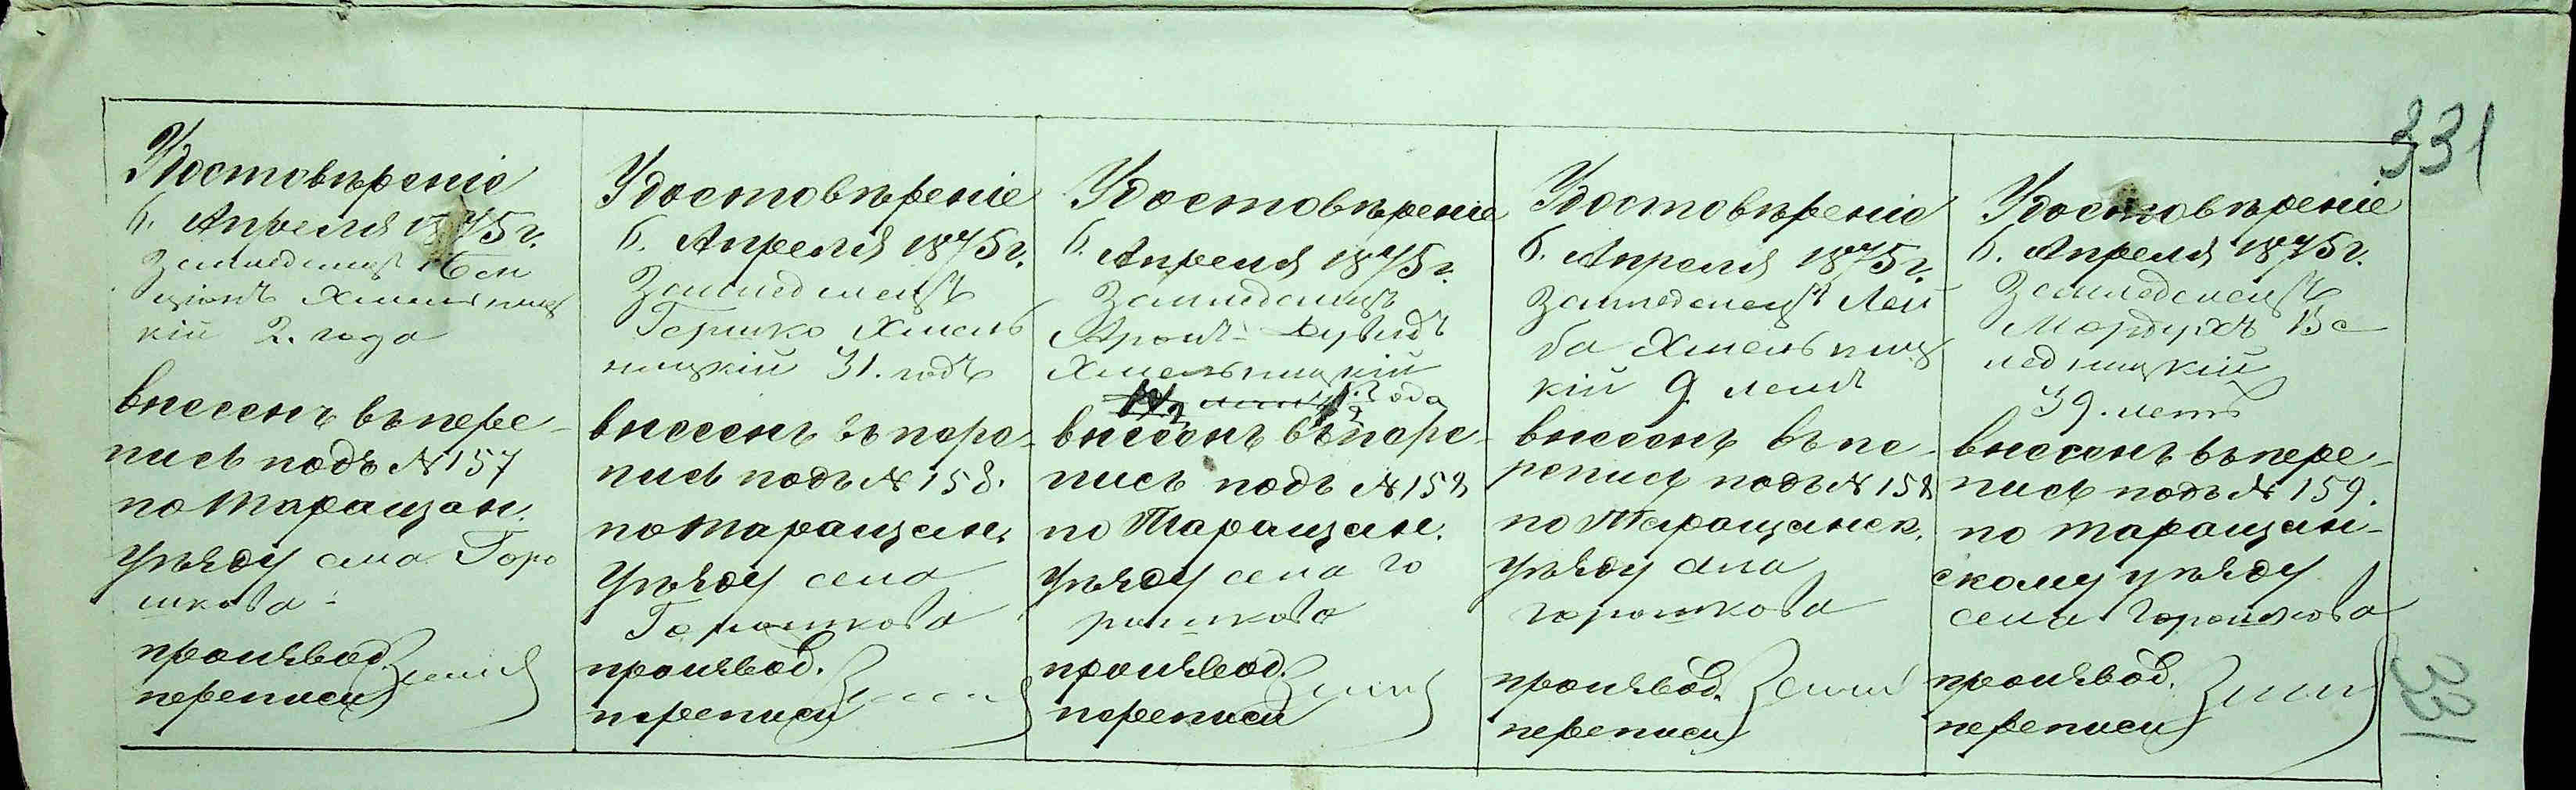 331
Удостовѣреніе
6. Апреля 1875 г.
Земледелецъ Бен
ціонъ Хмельниц
кій 2. года
внесенъ въ пере-
пись подъ № 157
по Таращан.
уѣзду села Горо
шкова
производ.
переписи
Удостовѣреніе
6. Апреля 1875 г.
Земледелецъ
Гершко Хмель
ницкій 31. годъ
внесенъ въ пере-
пись подъ № 158.
по Таращан.
уѣзду села
Горошкова
производ.
переписи
Удостовѣреніе
6. Апреля 1875 г.
Земледелецъ
Аронъ-Дувидъ
Хмельницкій
года
внесенъ въ пере-
пись подъ № 158
по Таращан.
уѣзду села Го
рошкова
производ.
переписи
Удостовѣреніе
6. Апреля 1875 г.
Земледелецъ Лей
ба Хмельниц
кій 9 летъ
внесенъ въ пе-
репись подъ № 158
по Таращанск.
уѣзду села
Горошкова
производ.
переписи
Удостовѣреніе
6. Апреля 1875 г.
Земледелецъ
Мордухъ Бе
ледницкій
39. летъ
внесенъ въ пере-
пись подъ № 159.
по Таращан-
скому уѣзду
села Горошкова
производ.
переписи
331